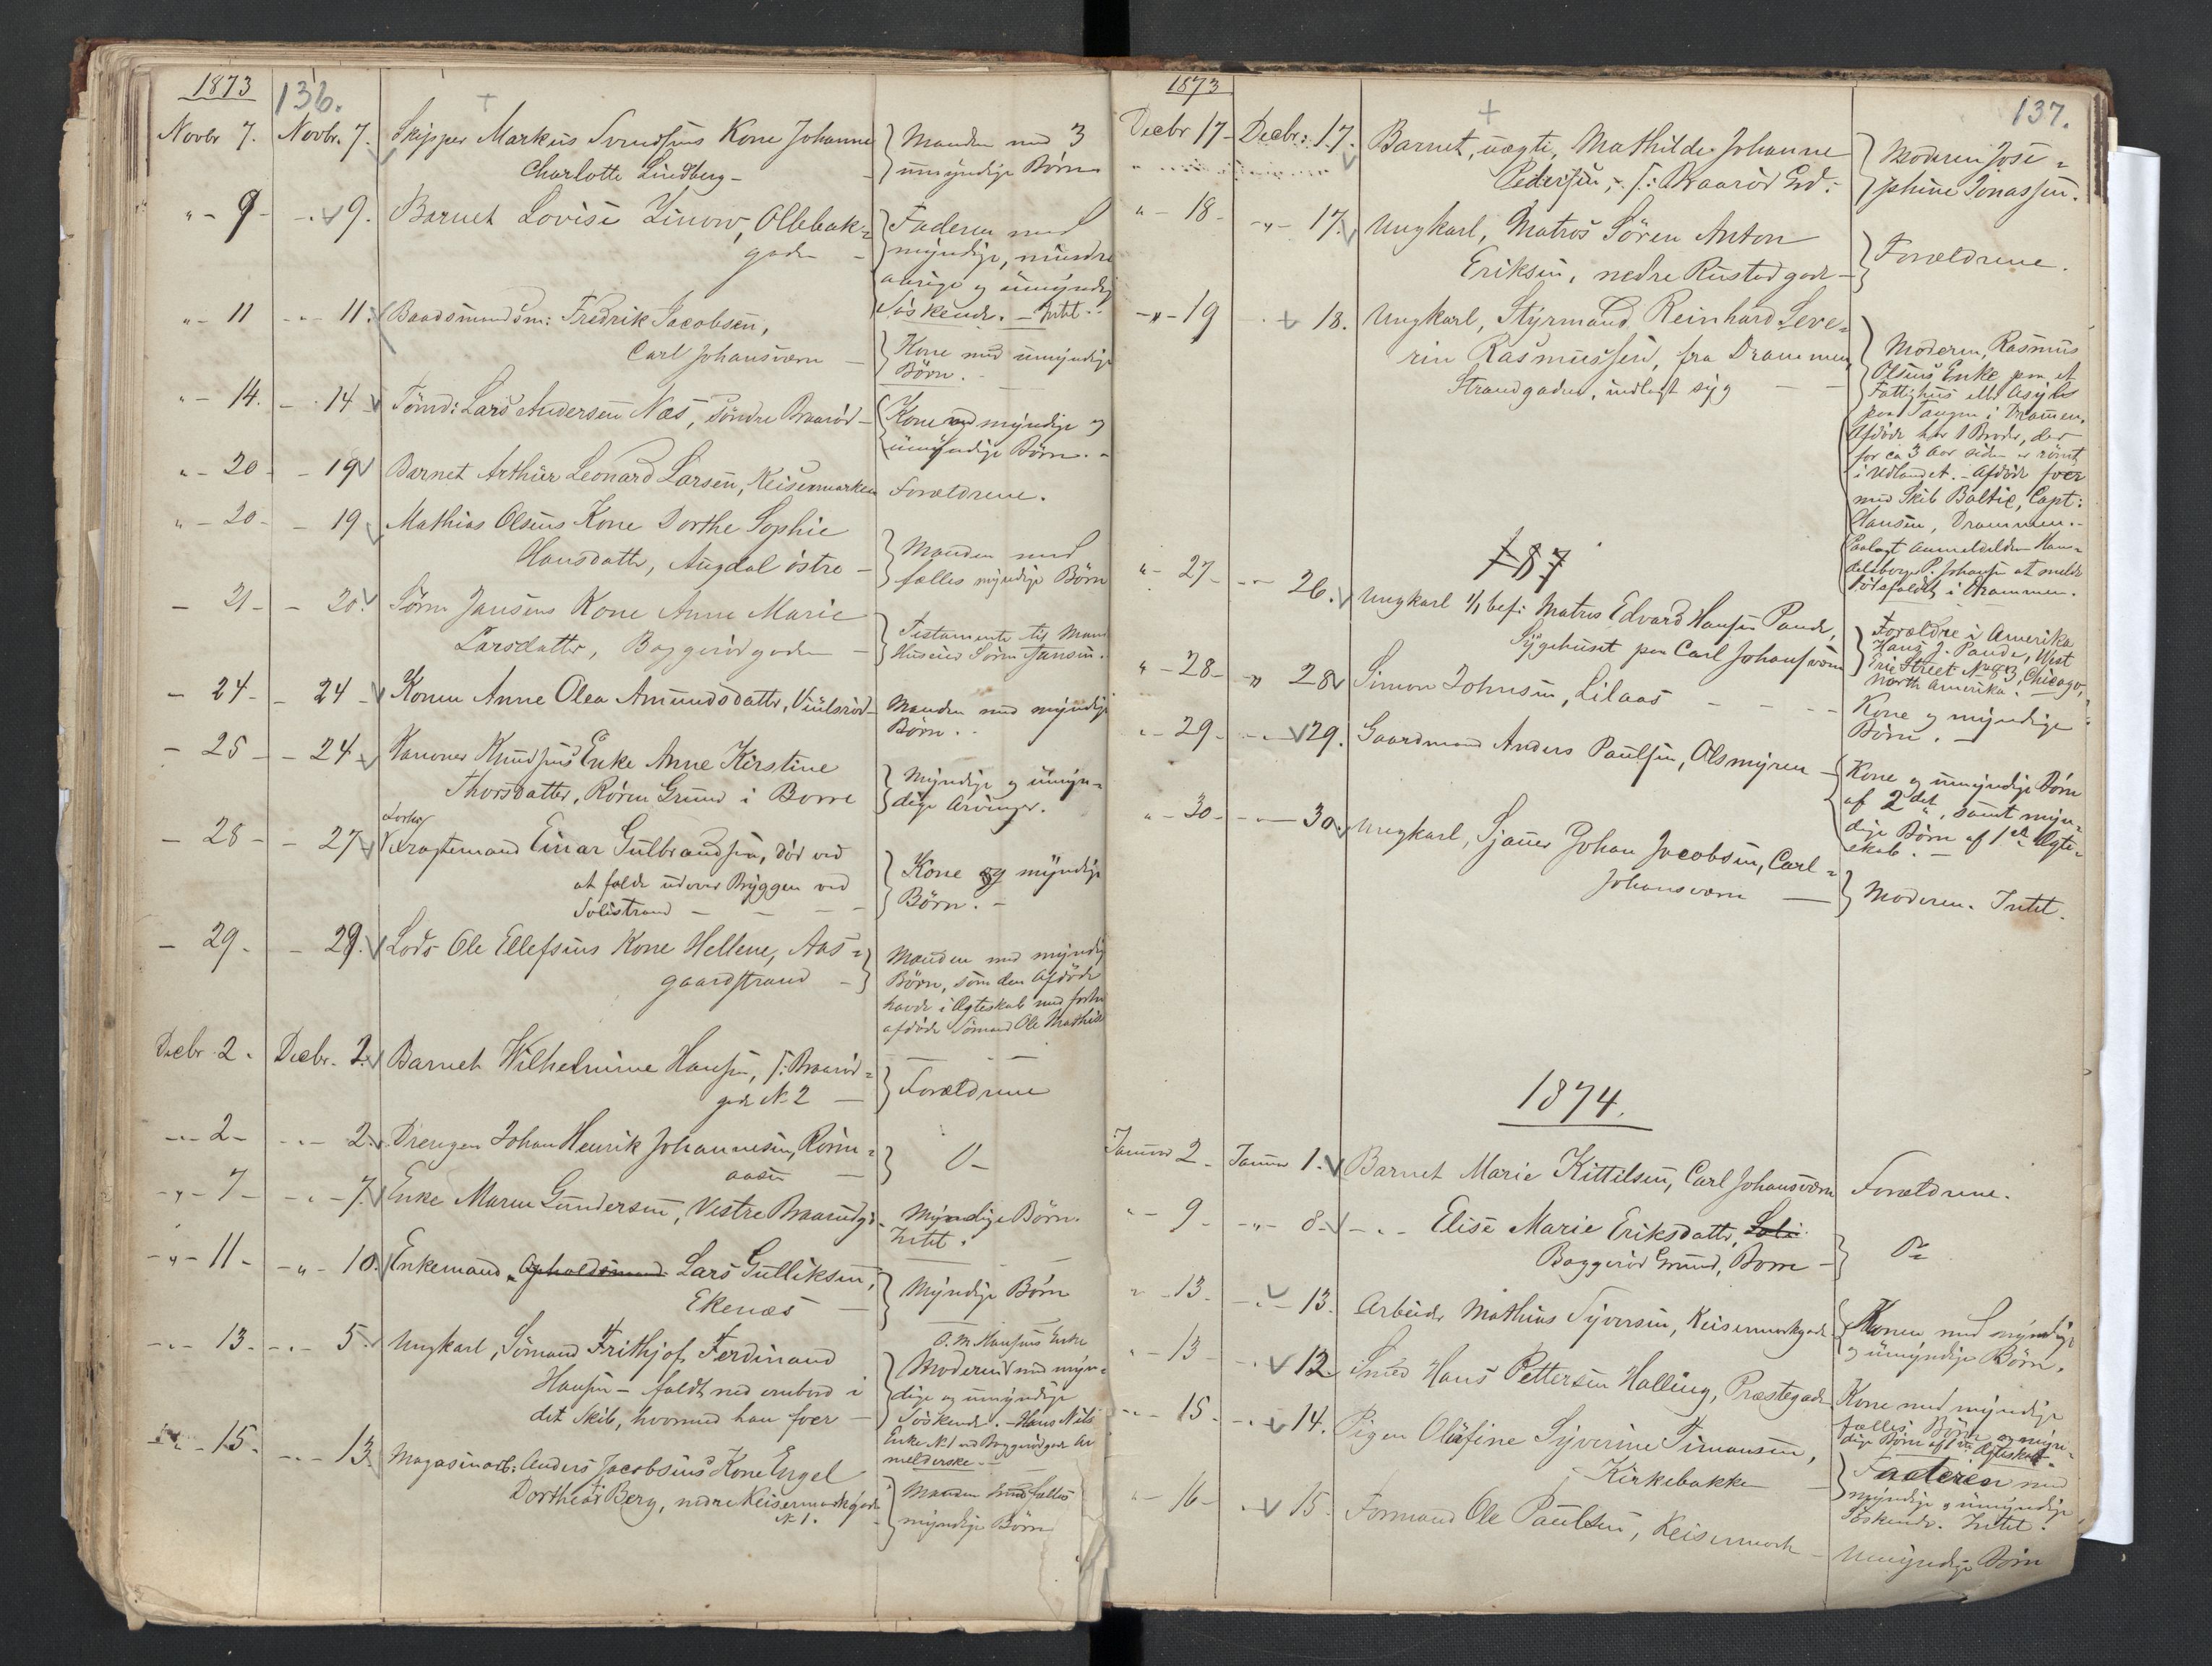 1873
136.
Novbr 7. Novbr. 7. Skipper Markus Svendsens Kone Johanne
Charlotte Lindberg -
Manden med 3
umyndige Børn
" - 9 - 9. Barnet Lovise Linow, Ollebak-
gaden -
Faderen med
myndige, mindre
aarige og umyndig
Søskende. - Intet.
" - 11 - 11. Baadsmandsm: Fredrik Jacobsen,
Carl Johansværn -
Kone med umyndige
Børn. -
" - 14. - 14 Tømd: Lars Andersen Næs, søndre Braarød -
Kone med myndige og
umyndige Børn. -
" - 20 - 19 Barnet Arthur Leonard Larsen, Keisermarken
Forældrene.
" - 20 - 19 Mathias Olsens Kone Dorthe Sophie
Hansdatter, Augdal østre -
Manden med
fælles myndige Børn
- 21 - 20. Søren Jansens Kone Anne Marie
Larsdatter, Baggerødgaden -
Testamente til Mand
Huseier Søren Jansen.
- 24 - 24 Konen Anne Olea Amundsdatter,
Manden med myndige
Børn. -
- 25 - 24 Kanoner Knudsens Enke Anne Kirstine
Thorsdatter, Røren Grund i Borre
Myndige og umyn-
dige Arvinger.
- 28 - 27 Fragtemand Einar Gulbrandsen, død ved
at falde udover Bryggen ved
Solistrand - - -
Kone og myndige
Børn. -
- 29. - 29. Lods Ole Ellefsens Kone Hellene, Aas-
gaardstrand -
Manden med myndig
Børn, som den Afdøde
havde i Ægteskab med forhen
afdøde Sømand Ole Mathise
Decbr 2. Decbr. 2. Barnet Wilhelmine Hansen, s: Braarød-
gade No 2 -
Forældrene
- " - 2 - " - 2. Drengen Johan Henrik Johannesen, Røren-
aasen -
- " - 7 - " - 7. Enke Maren Gundersen, Vestre Braarødgd -
Myndige Børn.
Intet.
- " - 11 - " - 10. Enkemand, Opholdsmand Lars Gulliksen,
Ekenæs -
Myndige Børn
- " - 13 - " - 5. Ungkarl, Sømand Frithjof Ferdinand
Hansen - faldt ned ombord i
det Skib, hvormed han foer -
O. M. Hansens Enke
Moderen med myn-
dige og umyndige
Søskende. - Hans Nils
Enke No 1 ved Baggerødgade An
melderske. -
- " - 15. - " - 13. Magasinarb: Anders Jacobsens Kone Engel
Dorthea Berg, nedre Keisermarkgade
No 1.
Manden med fælles
myndige Børn
1873
137.
Decbr 17 - Decbr: 17. Barnet, uægte, Mathilde Johanne
Pedersen, s: Braarød Grd. -
Moderen Jose-
phine Jonassen.
" - 18 - " - 17. Ungkarl, Matros Søren Anton
Eriksen, nedre Rustadgade -
Forældrene.
- " - 19 18. Ungkarl, Styrmand Reinhard Seve-
rin Rasmussen, fra Drammen,
Strandgaden, indlagt syg - -
Moderen, Rasmus
Olsens Enke paa et
Fattighus eller Asyl
paa Tangen i Drammen.
Afdøde har 1 Broder, der
for ca 3 Aar siden er rømt
i Udlandet. - Afdøde foer
med Skib Baltic, Capt:
Hansen, Drammen. -
Paalagt Anmelderen Han-
delsborger P. Johansen at melde
Dødsfaldet i Drammen.
187
" - 27 - " - 26. Ungkarl 1/1 bef: Matros Edvard Hansen Pande,
Sygehuset paa Carl Johansværn
Forældre i Amerika
Hans J. Pande, West
Erie Street No 83, Chicago,
North Amerika.
" - 28 - " 28 Simon Johnsen, Lilaas - - - -
Kone og myndige
Børn. -
" - 29 - " - 29. Gaardmand Anders Paulsen, Olsmyren -
Kone og umyndige Børn
af 2det, samt myn-
dige Børn af 1ste Ægte-
skab. -
" - 30 - " - 30. Ungkarl, Sjauer Johan Jacobsen, Carl-
Johansværn -
Moderen. Intet.
1874.
Januar 2 - Januar 1. Barnet Marie Kittilsen, Carl Johansværn
Forældrene.
" - 9 - " - 8. - " - Elise Marie Eriksdatter, Soli
Baggerød Grund, Borre -
" - 13. - " - 13. Arbeider Mathias Syversen, Keisermarkgade
Konen med myndige
og umyndige Børn.
" - 13 - " 12. Smed Hans Pettersen Halling, Præstegade
Kone med myndige
fælles Børn og myn-
dige Børn af 1ste Ægteskab.
" - 15 - " 14. Pigen Olufine Syverine Simonsen,
Kirkebakken -
Faderen med
myndige & umyndige
Søskende. Intet.
" - 16 - " 15. Formand Ole Paulsen, Keisermark -
Umyndige Børn